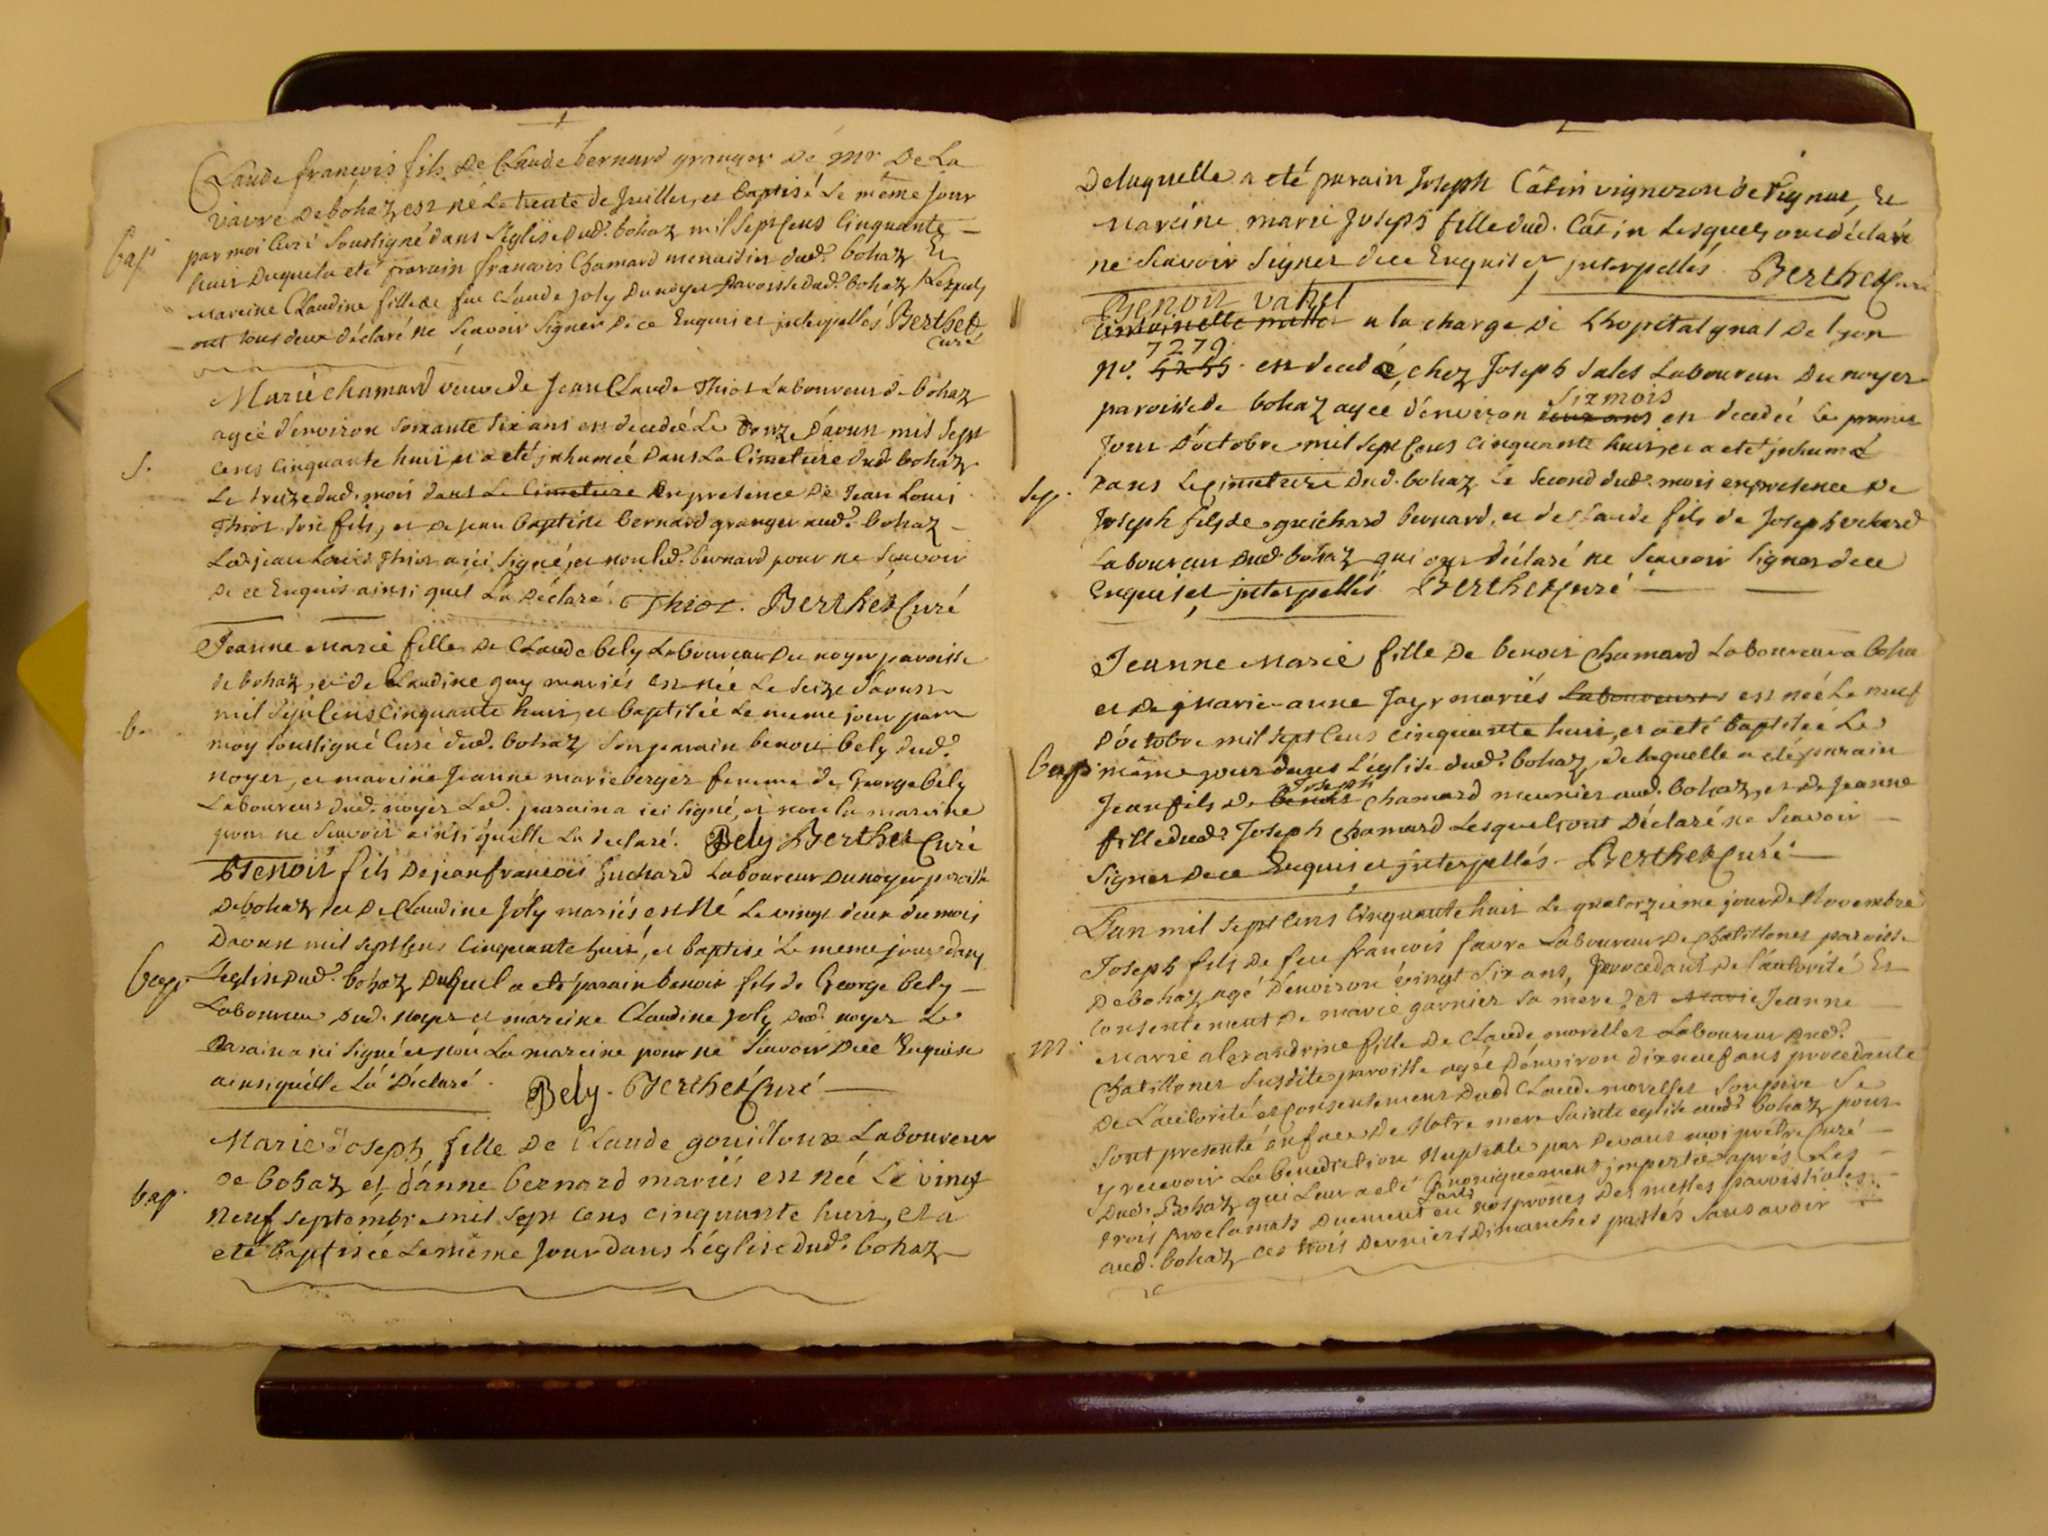 Claude françois fils De Claude bernard granger De mr De La
vavre De bohaz est né Le trente de Juillet, et baptisé Le même jour
par moi Curé Soussigné dans l'église Dud. bohaz mil Sept Cens Cinquante
bap.
huit Duquel a eté parain françois Chamard menuisier dud. bohaz Et
Mareine Claudine fille de feu Claude Joly Du noyer Paroisse dud. bohaz Lesquels
ont tous deux déclaré ne Scavoir Signer De ce Enquis et interpellés Berthet
Curé
Marie Chamard veuve de Jean Claude Thiot Laboureur De bohaz
agée d'environ Soixante Six ans est decedée Le Douze D'aoust mil Sept
cens cinquante huit et a eté inhumée Dans Le Cimetiere dud bohaz
S.
Le treize dud. mois dans Le Cimetiere En presence De Jean Louis
Thiot Son fils, et De jean baptiste bernard granger aud. bohaz
Led. jean Louis Thiot a ici Signé, et non led. bernard pour ne Scavoir
De ce Enquis ainsi quil L'a Déclaré. Thiot. Berthet Curé
Jeanne Marie fille De Claude bely Laboureur Du noyer paroisse
de bohaz, et de Claudine guy mariés est née Le Seize d'aoust
mil Sept Cens Cinquante huit, et baptisée Le meme jour par
b.
moy Soussigné Curé dud. bohaz Son parain benoit bely dud.
noyer, et mareine Jeanne marie berger femme de George bely
Laboureur dud. noyer Led. parain a ici Signé, et non la mareine
pour ne Scavoir ainsi qu'elle La declaré. Bely Berthet Curé
Benoit fils De jean françois Guichard Laboureur Du noyer paroisse
De bohaz et De Claudine Joly mariés est Né Le vingt deux du mois
Daoust mil Sept Cens Cinquante huit, et baptisé Le meme jour dans
bap.
L'eglise Dud. bohaz Duquel a eté parain benoit fils de George bely
Laboureur Dud. noyer et mareine Claudine Joly Dud. noyer Le
Parain a ici Signé et non La mareine pour ne Scavoir De ce Enquise
ainsi qu'elle La Déclaré. Bely. Berthet Curé
Marie Joseph fille De Claude gouilloux Laboureur
de bohaz et d'anne bernard mariés est née Le vingt
bap.
Neuf Septembre mil Sept cens cinquante huit, et a
eté baptisée Le même Jour dans L'église dud. bohaz
De laquelle a eté parain Joseph Catin vigneron de, Et
Mareine marie Joseph fille dud. Catin Lesquels ont déclaré
ne Scavoir Signer De ce Enquis et interpellés Berthet Curé
Benoit vahel
a la charge De L'hopital gnal De Lyon
7279
no. est decedé, chez Joseph Sales Laboureur Du noyer
Six mois
paroisse de bohaz agee d'environ deux ans est decedé Le premier
Jour D'octobre mil Sept Cens Cinquante huit, et a eté inhumé
Sep.
Dans Le Cimetiere Dud. bohaz Le Second dud. mois en presence De
Joseph fils de guichard bernard, et de Claude fils de Joseph
Laboureur Dud. bohaz qui ont déclaré ne Scavoir Signer de ce
Enquis et interpellés Berthet Curé
Jeanne Marie fille De benoit Chamard Laboureur a boha
et De Marie-anne Jayr mariés Laboureurs est née Le neuf
D'octobre mil Sept Cens Cinquante huit, et a eté baptisée Le
bap.
même jour dans L'église dud. bohaz, de laquelle a eté parain
Joseph
Jean fils De benoit Chamard meunier aud. bohaz, et De Jeanne
fille dud. Joseph Chamard Lesquels ont Déclaré ne Scavoir
Signer De ce Enquis et interpellés. Berthet Curé
L'an mil Sept Cens Cinquante huit Le quatorzieme jour De Novembre
Joseph fils De feu françois favre Laboureur De Chatillonet paroisse
De bohaz agé D'environ vingt Six ans, procedant De l'autorité Et
Consentement De marie garnier Sa mere, Et Marie Jeanne
m.
Marie alexandrine fille De Claude morellet Laboureur Dud.
Chatillonet Susdite paroisse agée D'environ dix neuf ans procedante
De L'autorité et Consentement Dud. Claude morellet Son pere Se
Sont presenté en face De Notre mere Sainte eglise aud. bohaz pour
y recevoir La benediction Nuptiale par Devant moi prêtre Curé
Dud. Bohaz qui Leur a eté Canoniquement impartie après Les
faits
trois proclamats Duement en nos prônes Des messes paroissiales
aud. bohaz ces trois Derniers Dimanches passés Sans avoir